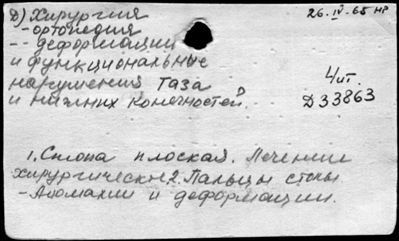 Д) Хирургия
26.IV.65 НР
- ортопедия
-- деформации
и функциональные
нарушения таза
и нижних конечностей.
4/ит.
Д33863
1. Стопа плоская. Лечение
хирургическое 2. Пальцы стопы
- Аномалии и деформации.